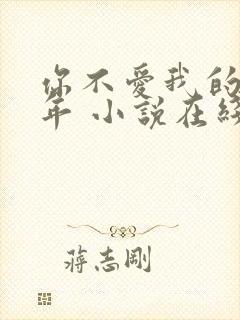 你不愛我的
年 小說在綫
蔣志剛